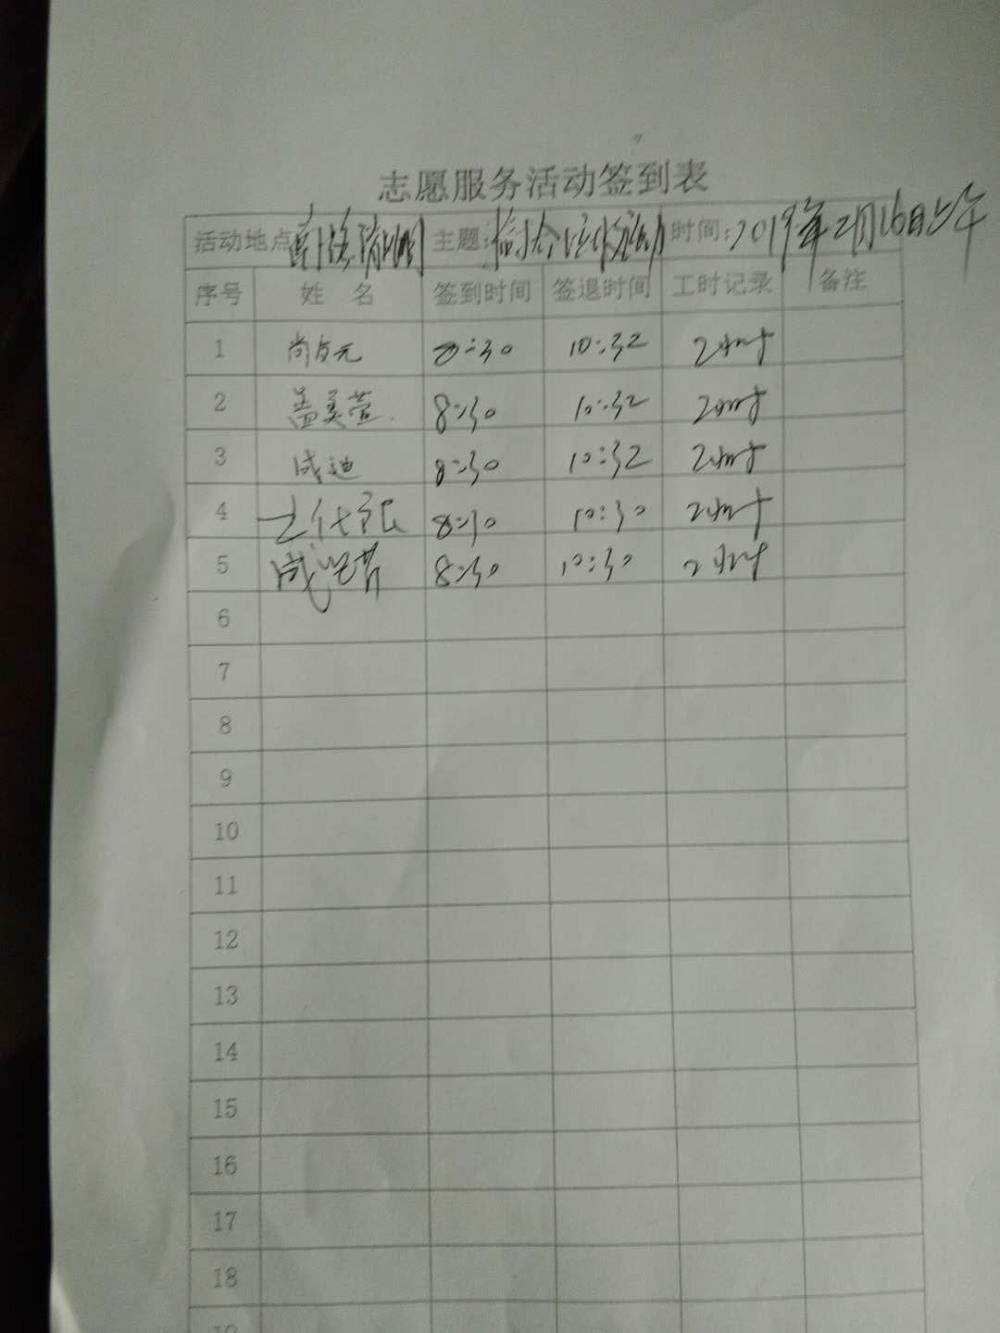 志愿服务活动签到表
活动地点 主题: 时间:2019年2月16日上午
序号 姓 名 签到时间 签退时间 工时记录 备注
1 尚白元 8:30 10:32 2小时
2 盖美萱 8:30 10:32 2小时
3 成迪 8:30 10:32 2小时
4 8:30 10:30 2小时
5 8:30 10:30 2小时
6
7
8
9
10
11
12
13
14
15
16
17
18
19